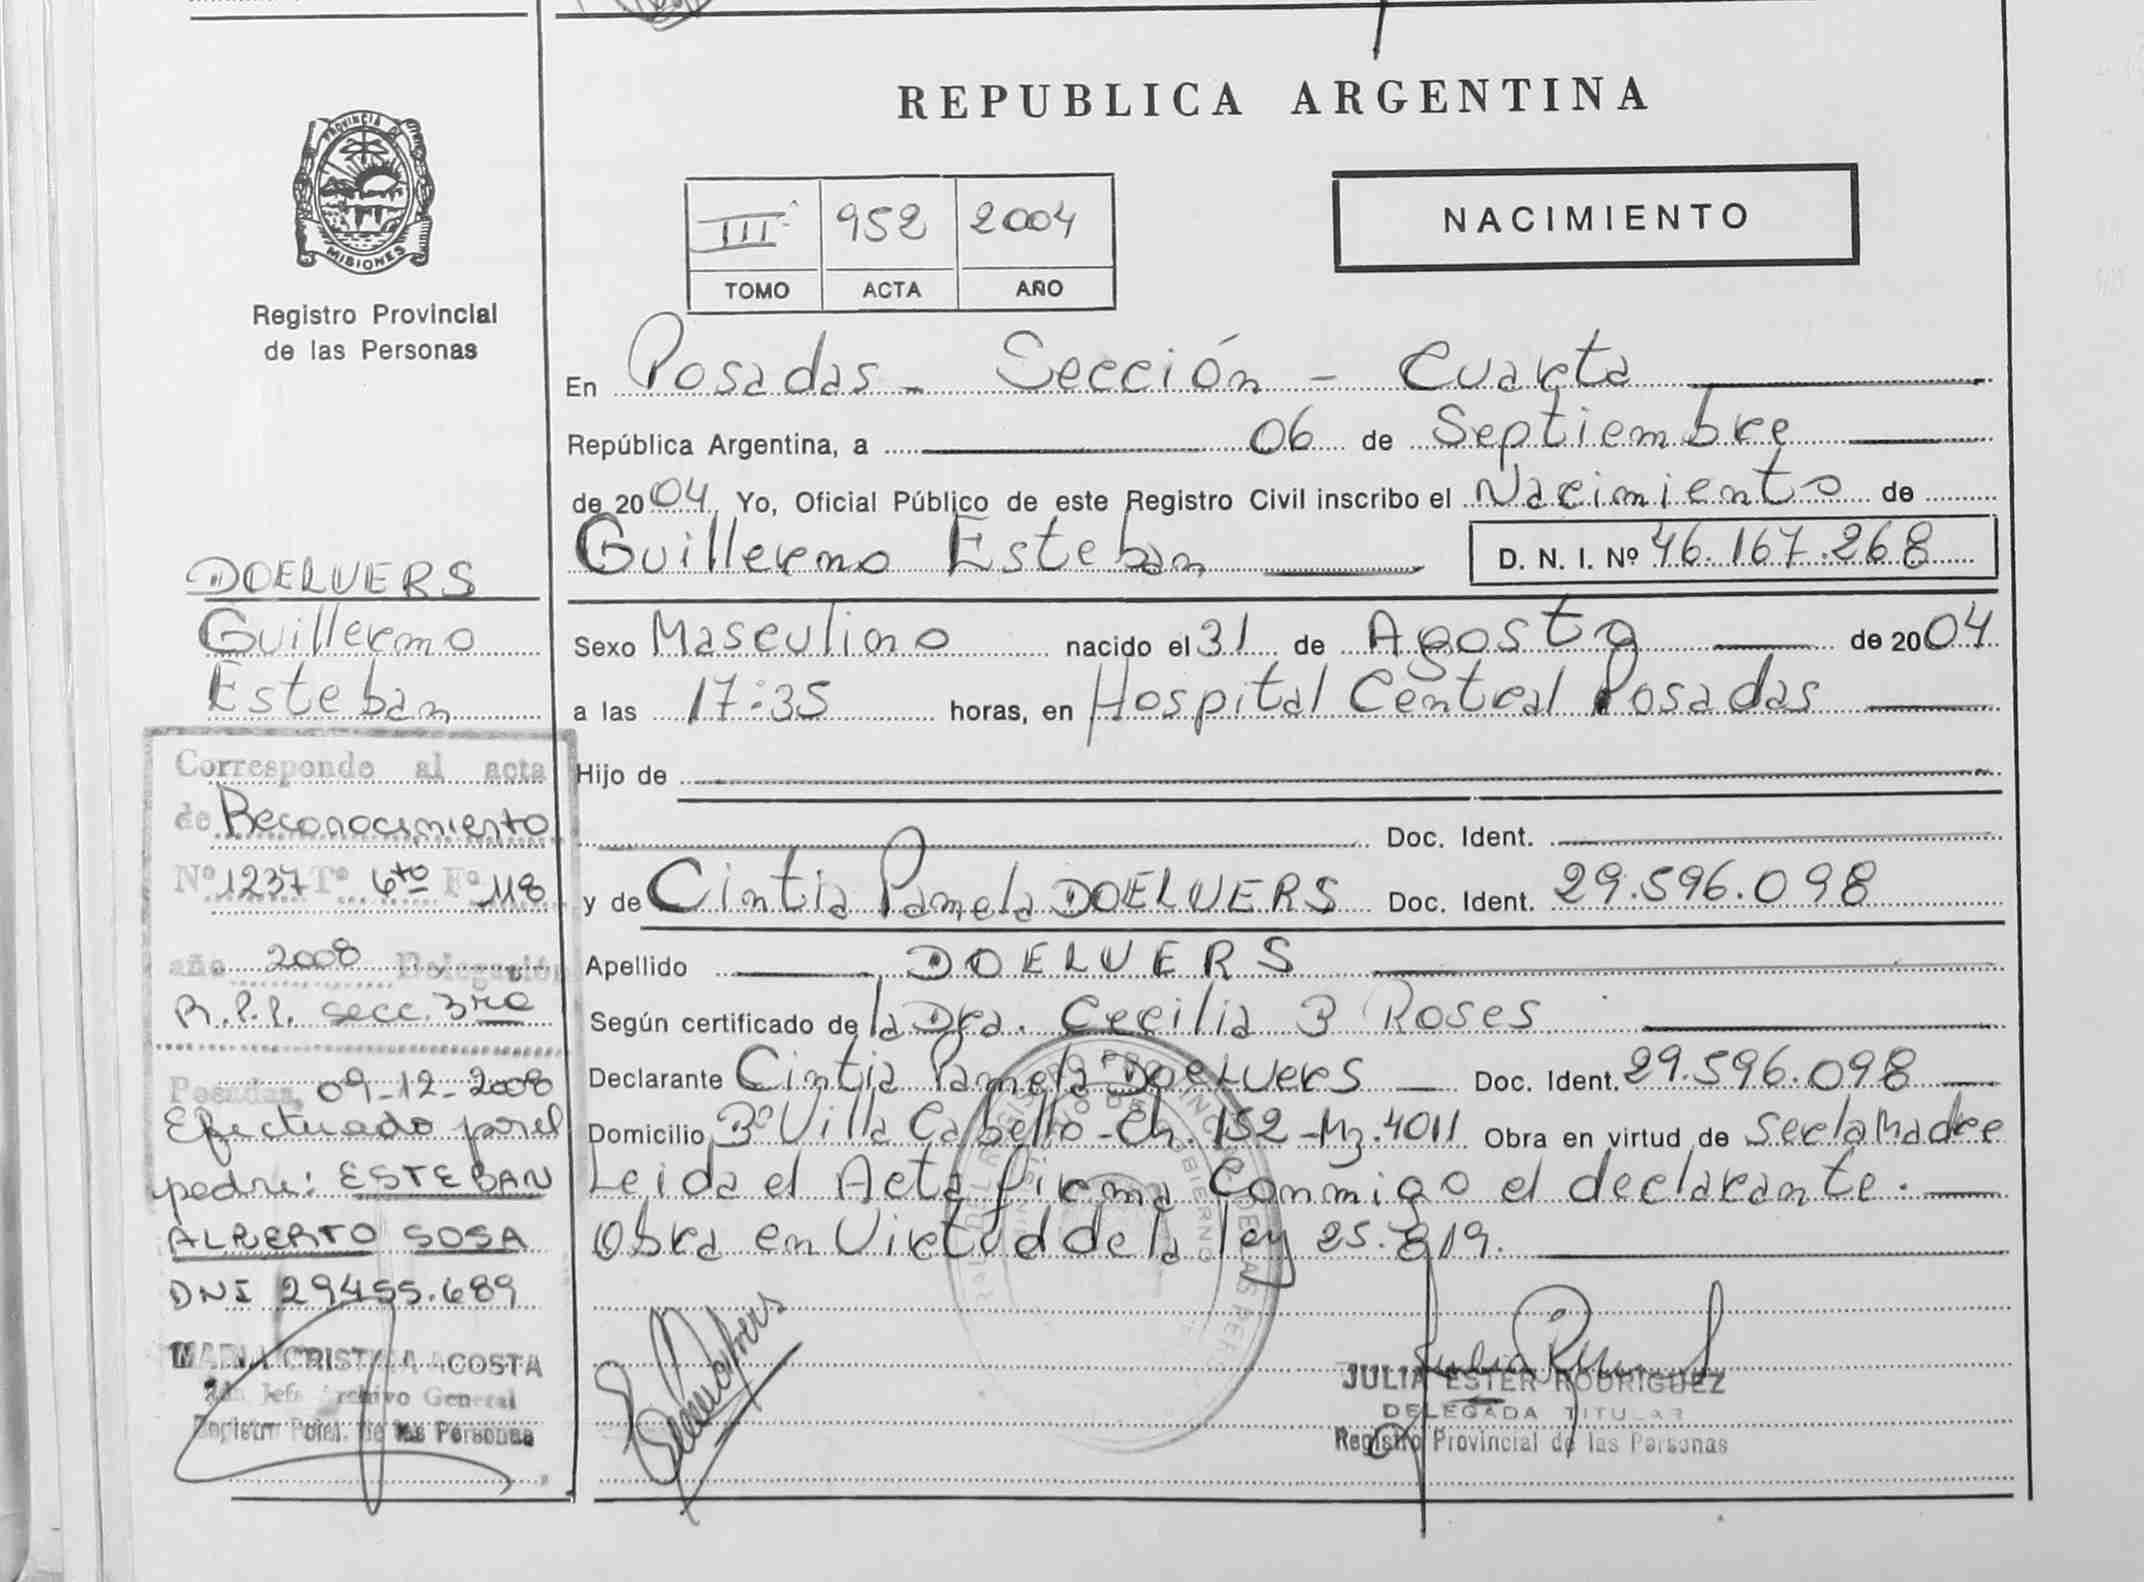 REPUBLICA ARGENTINA
PROVINCIA DE
MISIONES
Registro Provincial
de las Personas
III 952 2004
TOMO ACTA AÑO
NACIMIENTO
En Posadas - Sección - Cuarta
República Argentina, a 06 de Septiembre
de 2004 Yo, Oficial Público de este Registro Civil inscribo el Nacimiento de
Guillermo Esteban D. N. I. Nº 46.167.268
Sexo Masculino nacido el 31 de Agosto de 2004
a las 17:35 horas, en Hospital Central Posadas
Hijo de
Doc. Ident.
y de Cintia Pamela DOELVERS Doc. Ident. 29.596.098
Apellido DOELVERS
Según certificado de la Dra. Cecilia Roses
Declarante Cintia Pamela DOELVERS Doc. Ident. 29.596.098
Domicilio Bº Villa Cabello - Ch. 152 - Mz. 4011 Obra en virtud de Ser la Madre
Leida el Acta firma Conmigo el declarante.
Obra en Virtud de la ley 25.819.
JULIA ESTER RODRIGUEZ
DELEGADA TITULAR
Registro Provincial de las Personas
DOELVERS
Guillermo
Esteban
Corresponde al acta
de Reconocimiento
Nº 1237 Tº 6to Fº 118
año 2008 Delegación
R.P.P. secc. 3ra
Posadas, 09-12-2008
Efectuado por el
padre: ESTEBAN
ALBERTO SOSA
DNI 29455.689
MARIA CRISTINA ACOSTA
Jefe Archivo General
de las Personas